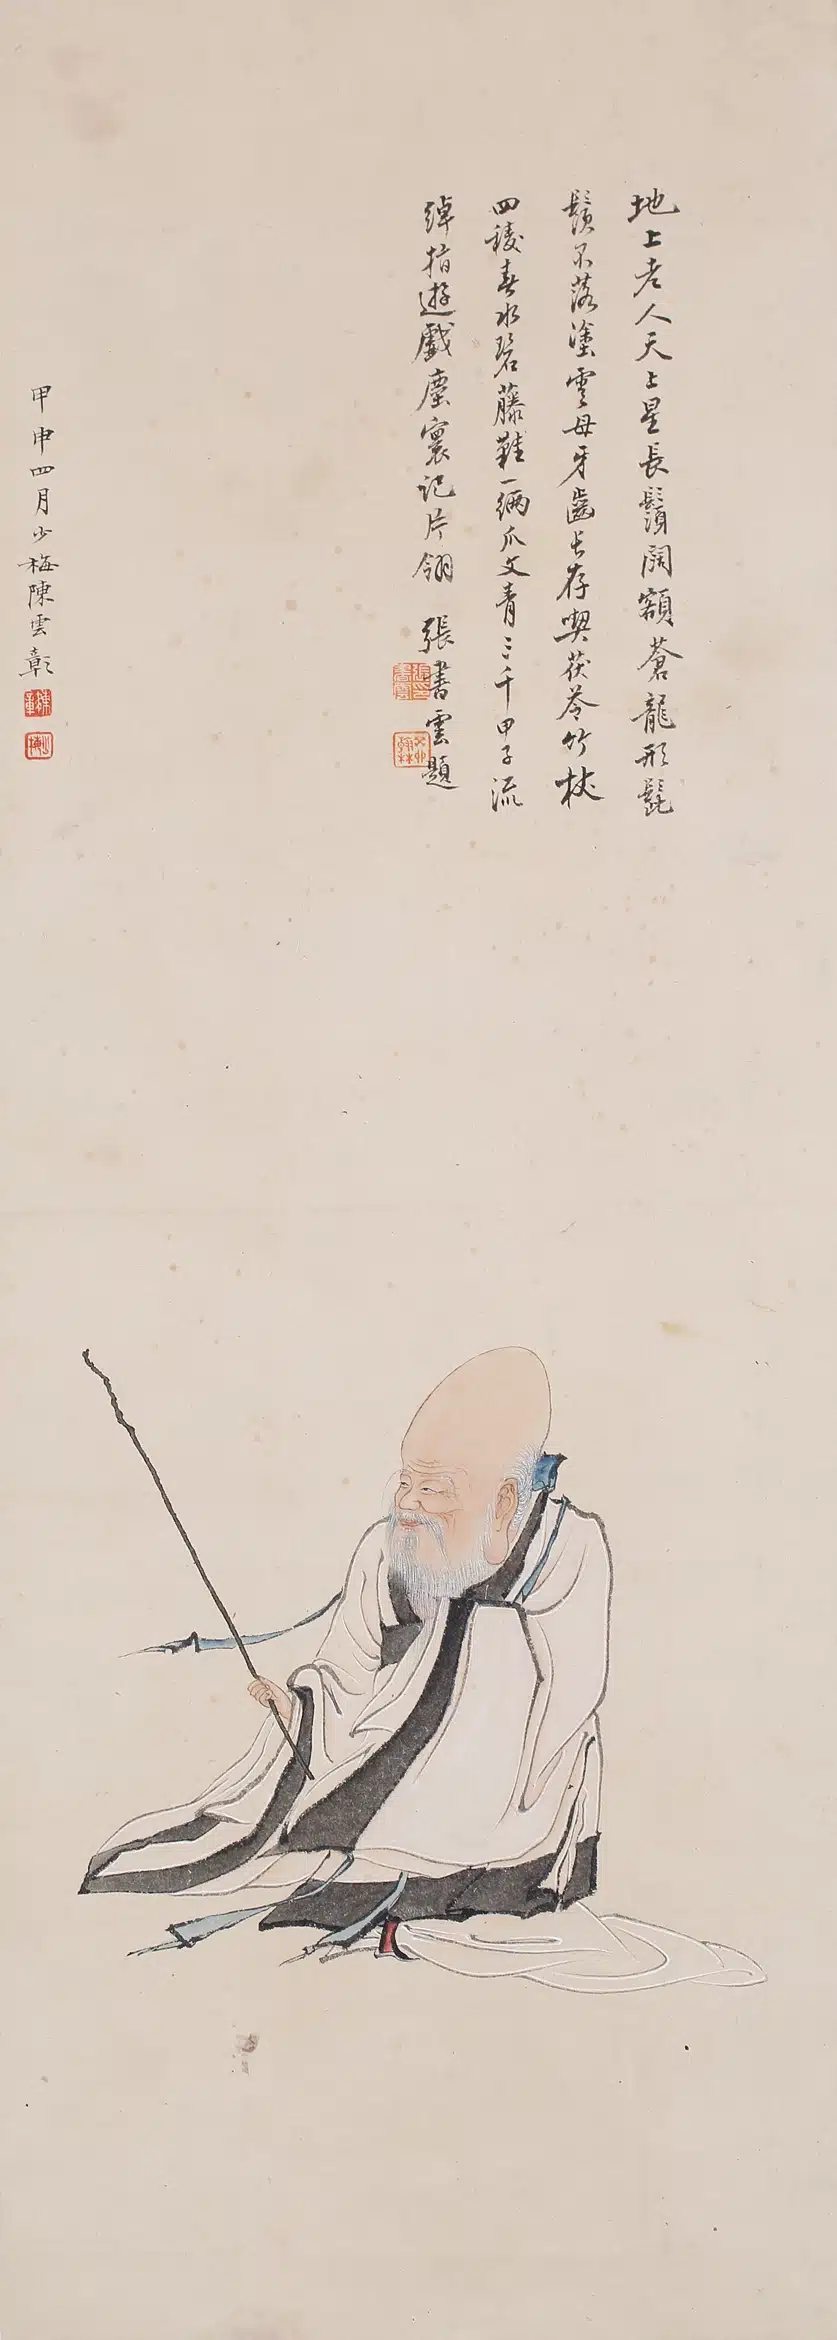 地上老人天上星長鬚闊額蒼龍形髭
鬚不落塗雲母牙齒長存喫茯苓竹杖
四稜春水碧藤鞋一緉爪文青三千甲子流
綽指遊戲塵寰記片翎 張書雲題
甲申四月少梅陳雲彰